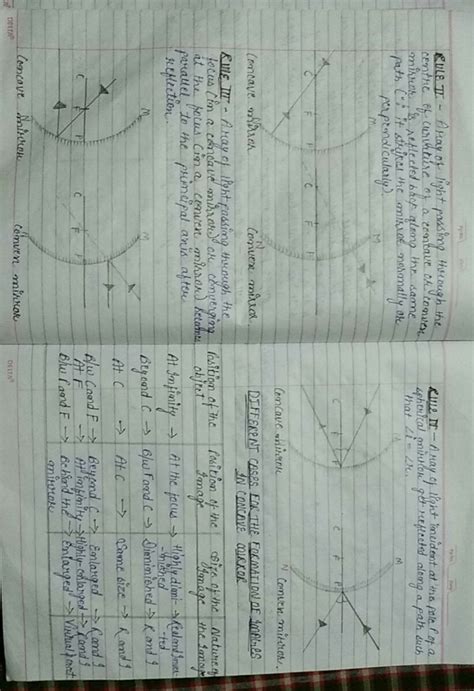 RULE II - A ray of light passing through the
centre of curvature of a concave or convex
mirror is reflected back along the same
path (∵ it strikes the mirror normally or
perpendicularly)
M
M
C
F
P
C
F
N
Concave mirror
Convex mirror.
RULE III - A ray of light passing through the
focus (in a concave mirror) or converging
at the focus (in a convex mirror) becomes
parallel to the principal axis after
reflection.
M
M
C
F
P
C
F
P
Concave mirror
Convex mirror
RULE IV - A ray of light incident at the pole P of a
spherical mirror get reflected along a path such
that ∠i = ∠r.
M
C
F
P
C
F
P
N
Concave mirror
Convex mirror.
DIFFERENT CASES FOR THE FORMATION OF IMAGES
IN CONCAVE MIRROR
Position of the object
Position of the Image
Size of the Image
Nature of the Image
At Infinity → At the focus → Highly diminished → Real and Inverted
Beyond C → B/w F and C → Diminished → R and I
At C → At C → Same size → R and I
B/w C and F → Beyond C → Enlarged → R and I
At F → At infinity → Highly enlarged → R and I
B/w P and F → Behind the mirror → Enlarged → Virtual and
DELTA
DELTA